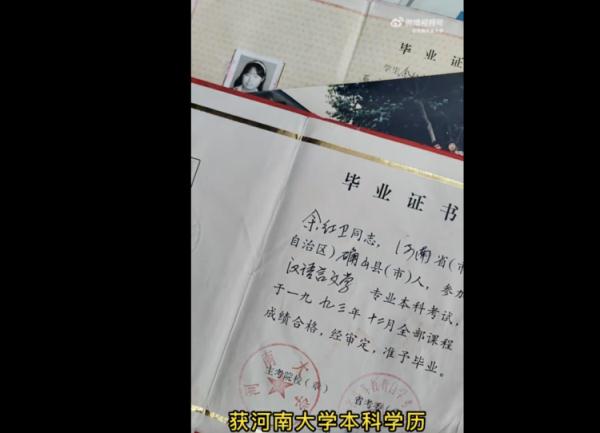 微博视频号
毕业证
学生余
毕业证书
余红卫同志，河南省（市
自治区）确山县（市）人，参加
汉语言文学 专业本科考试，
于一九九三年十二月全部课程
成绩合格，经审定，准予毕业。
主考院校（章）
河南大
省考委
获河南大学本科学历